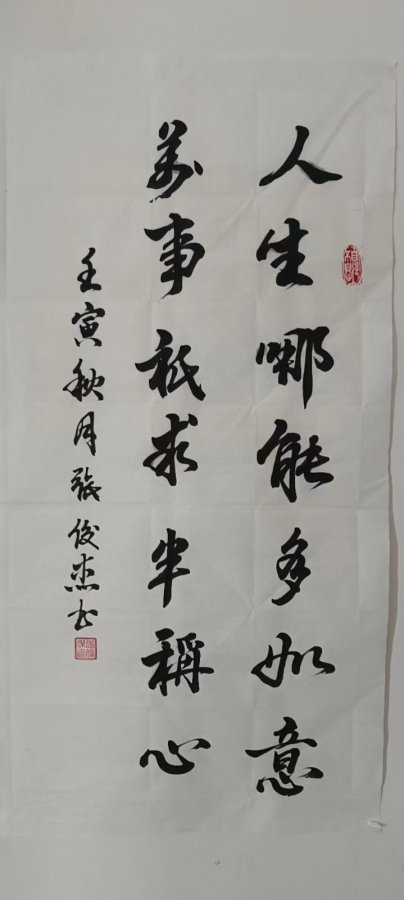 人生哪能多如意
萬事祗求半稱心
壬寅秋月張俊杰书